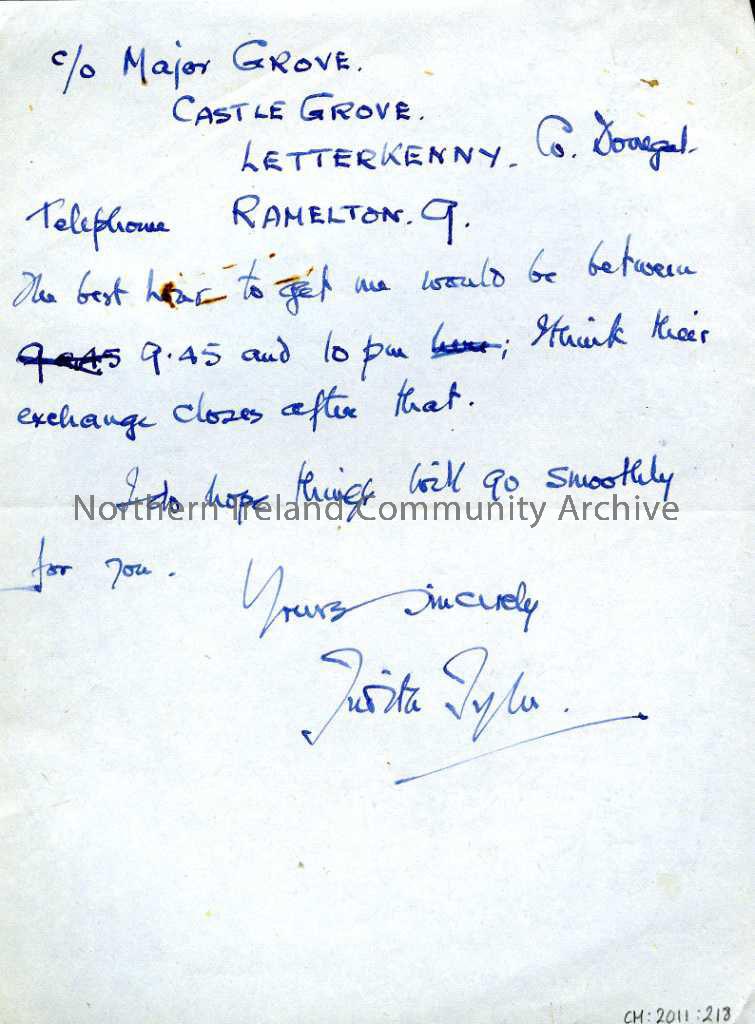 c/o Major GROVE.
CASTLE GROVE.
LETTERKENNY. Co. Donegal.
Telephone RAMELTON. 9.
The best hour to get me would be between
9.45 and 10 pm; I think their
exchange closes after that.
I do hope things will go smoothly
Northern Ireland Community Archive
for you.
Yours sincerely
CM:2011:213